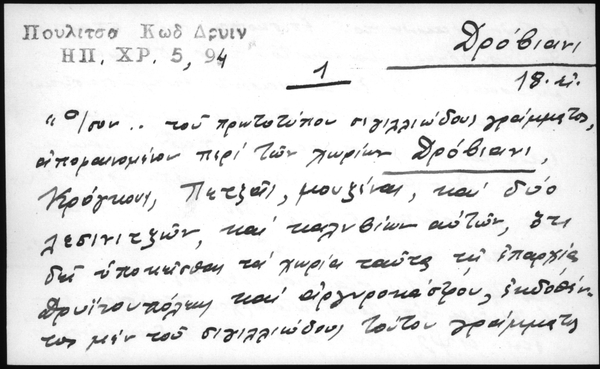 Πουλιτσα Κωδ Δρυιν
ΗΠ. ΧΡ. 5, 94
Δρόβιανι
1
18. αἰ.
"Ἴσον .. τοῦ πρωτοτύπου σιγιλλιώδους γράμματος,
περί τῶν χωρίων Δρόβιανι,
Κρόγκους, Πετζᾶς, μουζίναι, καί δύο
λεσινιτζῶν, καί καλυβίων αὐτῶν, ὅτι
δεῖ ὑποκεῖσθαι τά χωρία ταῦτα τῇ ἐπαρχίᾳ
Δρυϊνουπόλεως καί ἀργυροκάστρου, ἐκδοθέν-
τος μέν τοῦ σιγιλλιώδους τούτου γράμματος